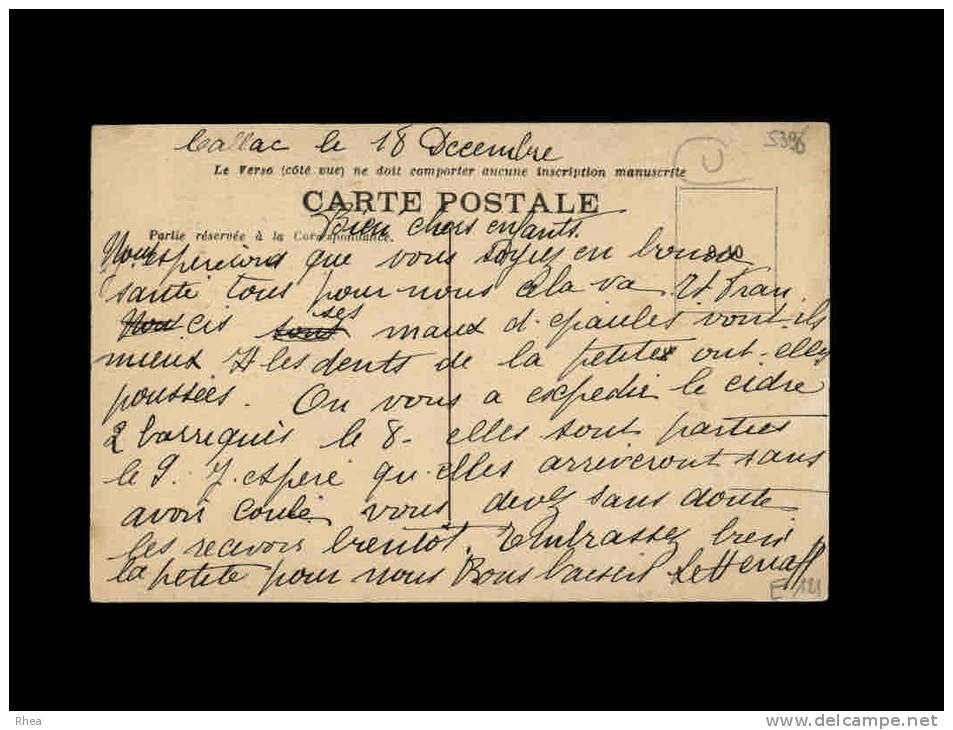 Callac le 18 Decembre
5396
U
Le Verso (côté vue) ne doit comporter aucune inscription manuscrite
CARTE POSTALE
Bien chers enfants.
Partie réservée à la Correspondance.
Nous esperions que vous soyez en bonne
santé tous pour nous cela va. Et Fran
cis ses maux d.epaules vont-ils
mieux Et les dents de la petite ont-elles
poussées. On vous a expedié le cidre
2 barriques le 8- elles sont parties
le 9. J.espere qu.elles arriveront sans
avoir coulé vous devez sans doute
les recevoir bientôt. Embrassez bien
la petite pour nous Bons baisers Le Henaff
E 121
Rhea
www.delcampe.net